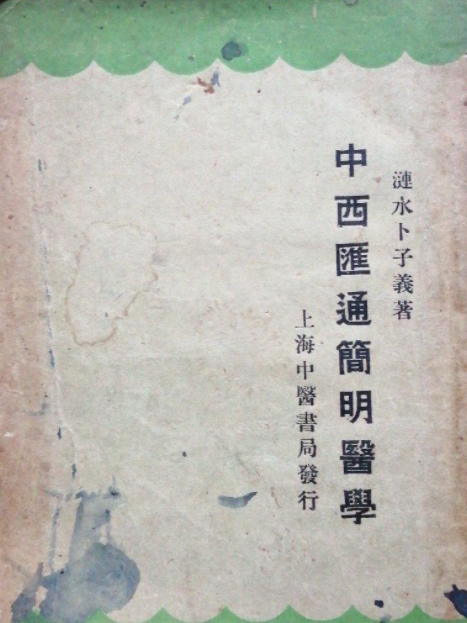 漣水卜子義著
中西匯通簡明醫學
上海中醫書局發行